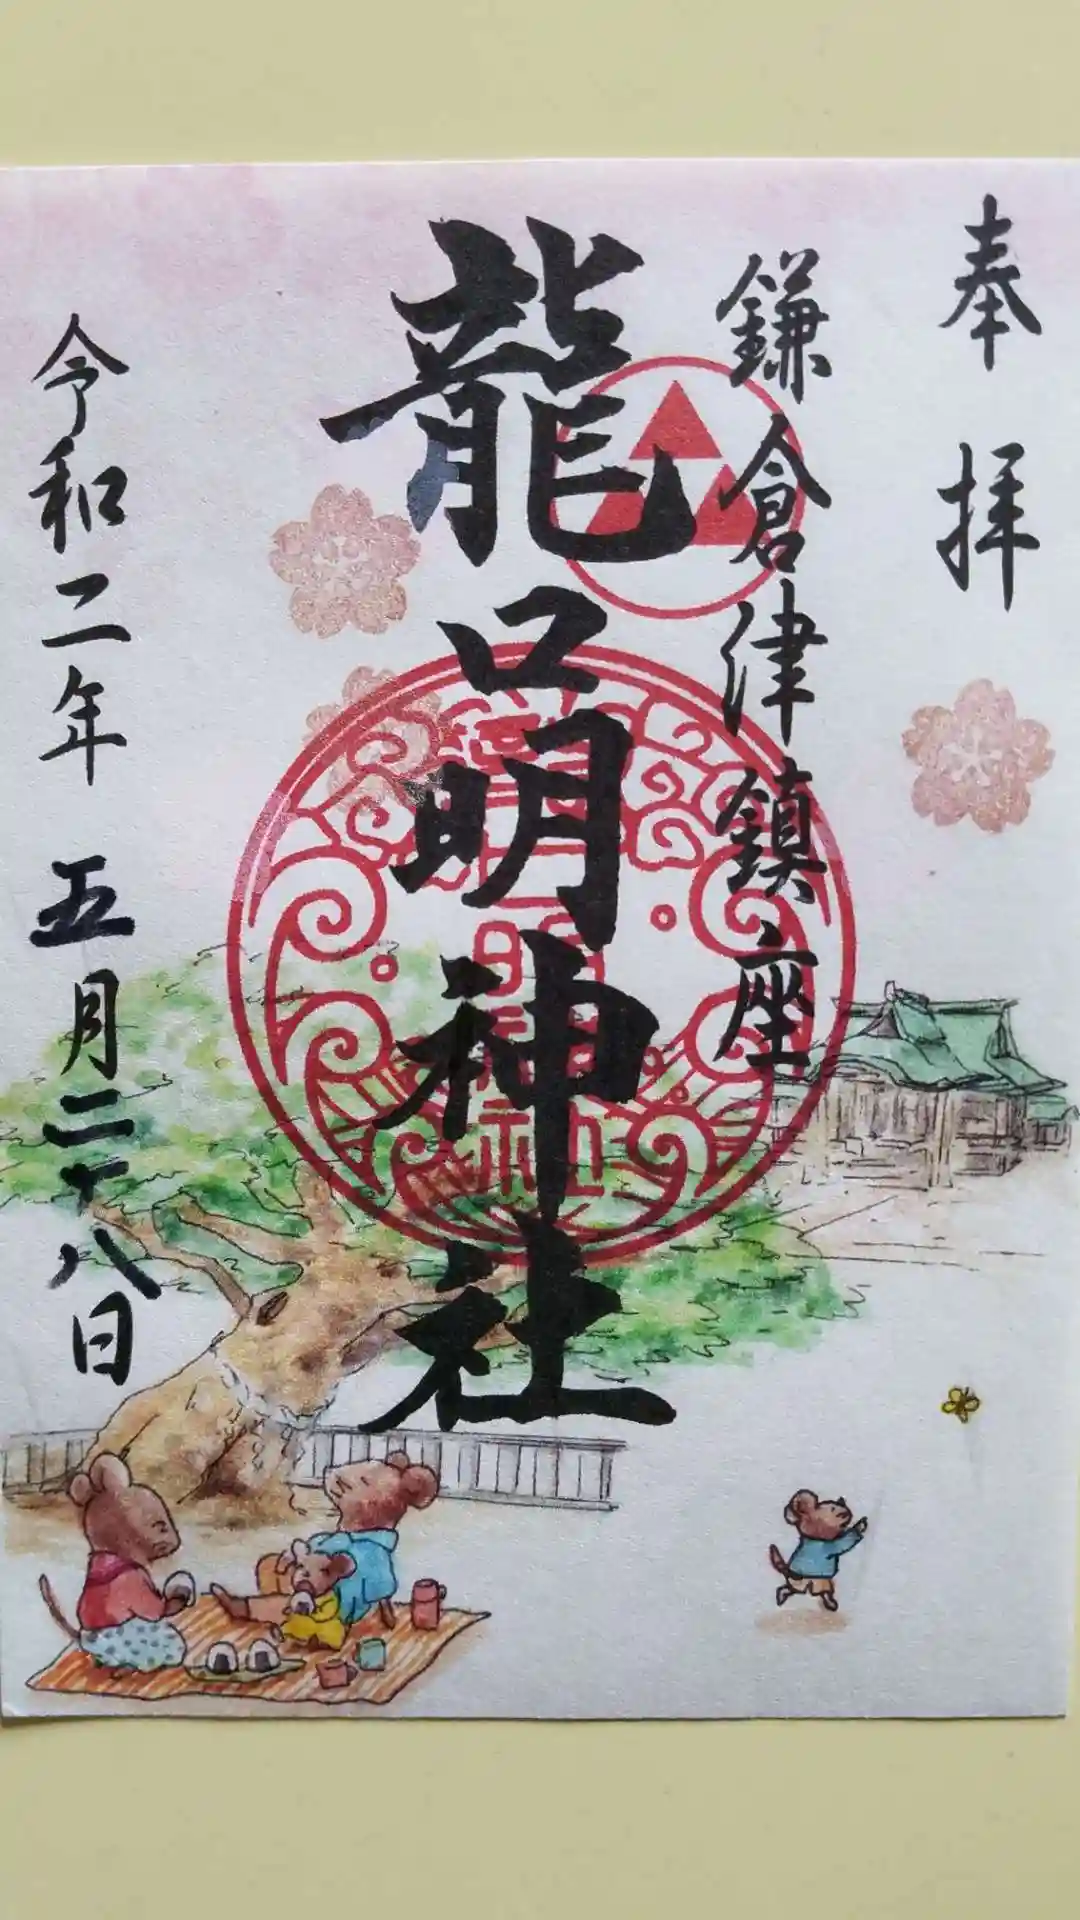 奉拝
鎌倉津鎮座
龍口明神社
令和二年五月二十八日